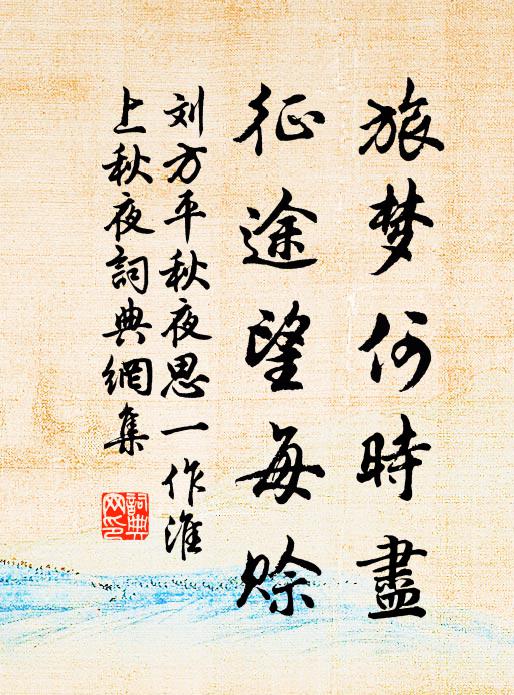 旅梦何時盡
征途望每赊
刘方平秋夜思一作淮
上秋夜詞典網集
詞典
网印